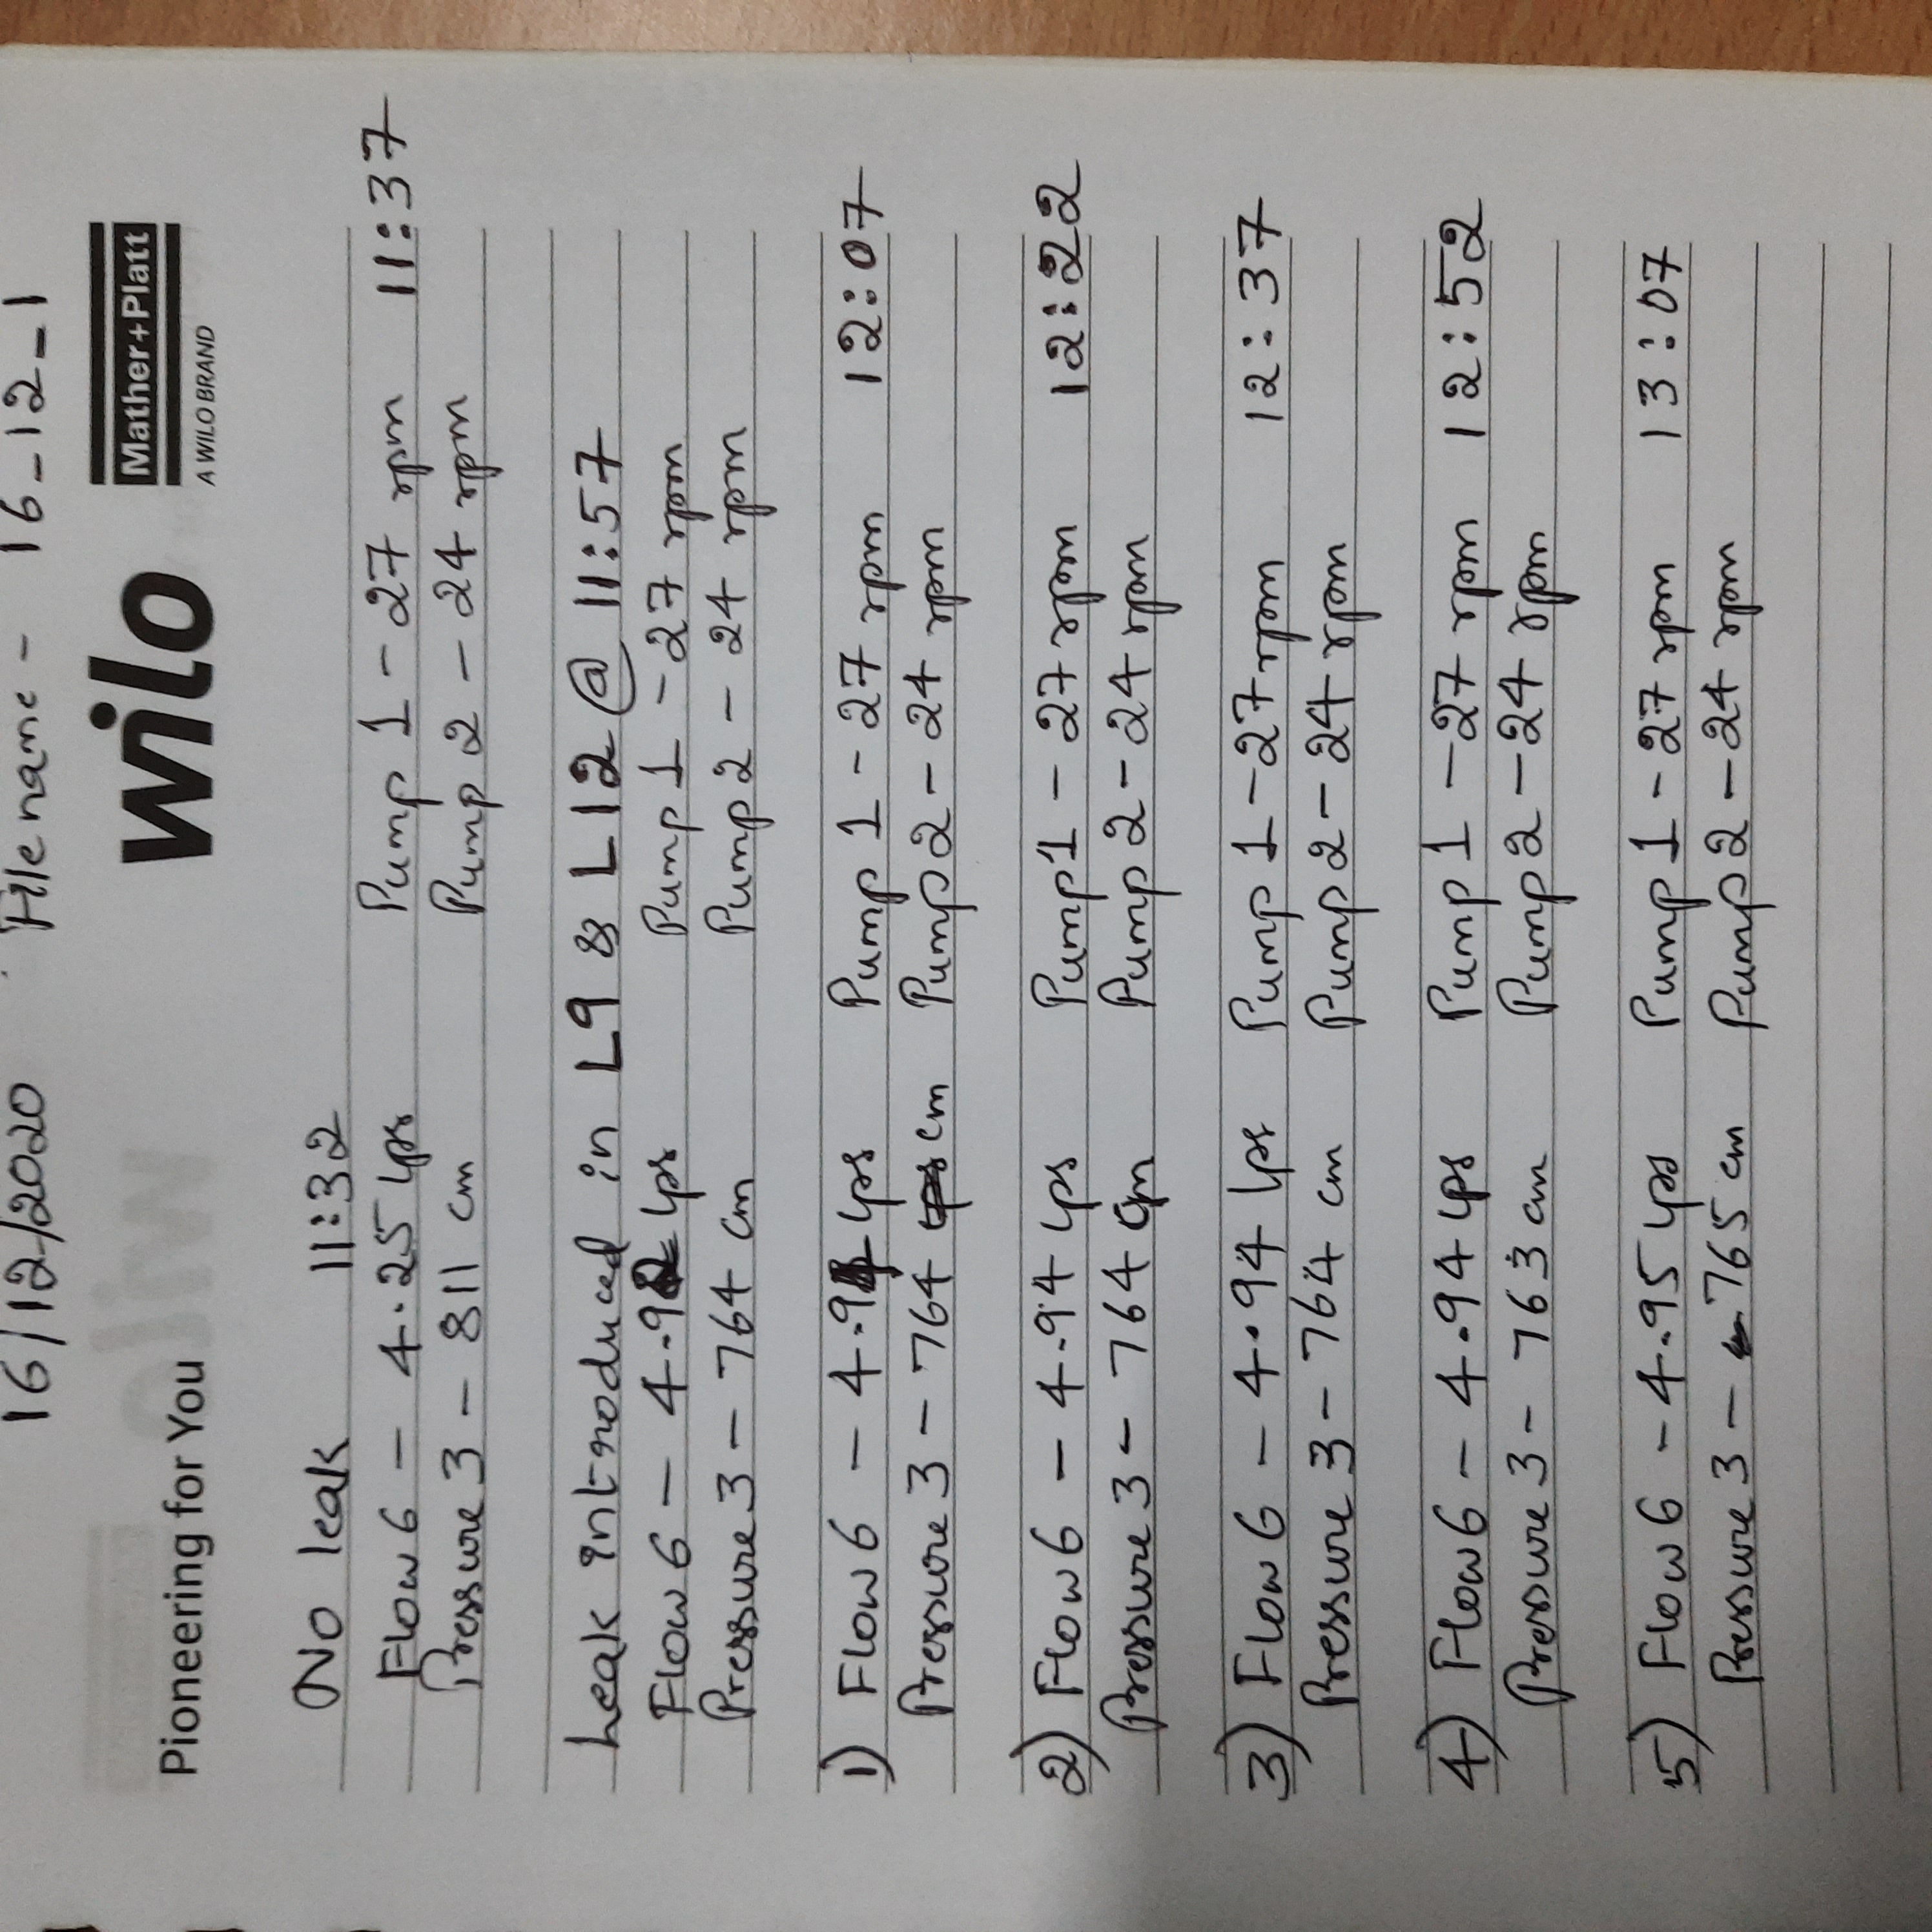 16/12/2020 File name - 16_12_1
Pioneering for You wilo Mather+Platt
A WILO BRAND
No leak 11:32
Flow 6 - 4.25 lps Pump 1 - 27 rpm 11:37
Pressure 3 - 811 cm Pump 2 - 24 rpm
Leak introduced in L9 & L12 @ 11:57
Flow 6 - 4.92 lps Pump 1 - 27 rpm
Pressure 3 - 764 cm Pump 2 - 24 rpm
1) Flow 6 - 4.94 lps Pump 1 - 27 rpm 12:07
Pressure 3 - 764 cm Pump 2 - 24 rpm
2) Flow 6 - 4.94 lps Pump 1 - 27 rpm 12:22
Pressure 3 - 764 cm Pump 2 - 24 rpm
3) Flow 6 - 4.94 lps Pump 1 - 27 rpm 12:37
Pressure 3 - 764 cm Pump 2 - 24 rpm
4) Flow 6 - 4.94 lps Pump 1 - 27 rpm 12:52
Pressure 3 - 763 cm Pump 2 - 24 rpm
5) Flow 6 - 4.95 lps Pump 1 - 27 rpm 13:07
Pressure 3 - 765 cm Pump 2 - 24 rpm